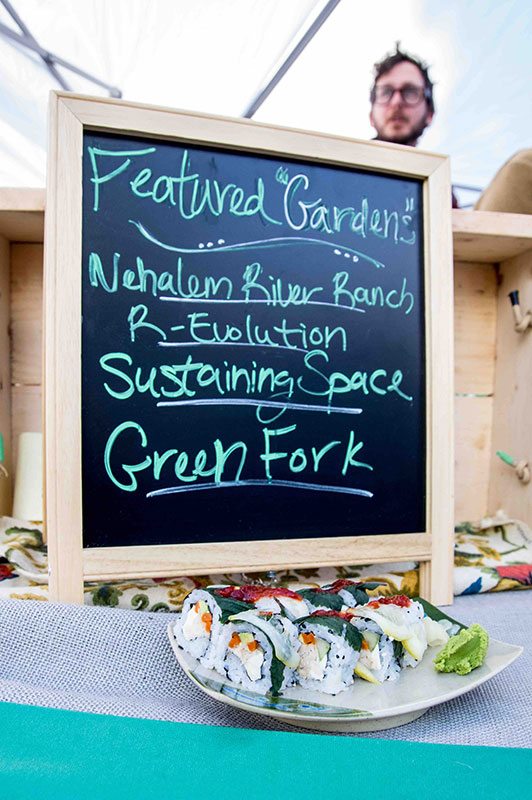 Featured "Gardens"
Nehalem River Ranch
R-Evolution
Sustaining Space
Green Fork